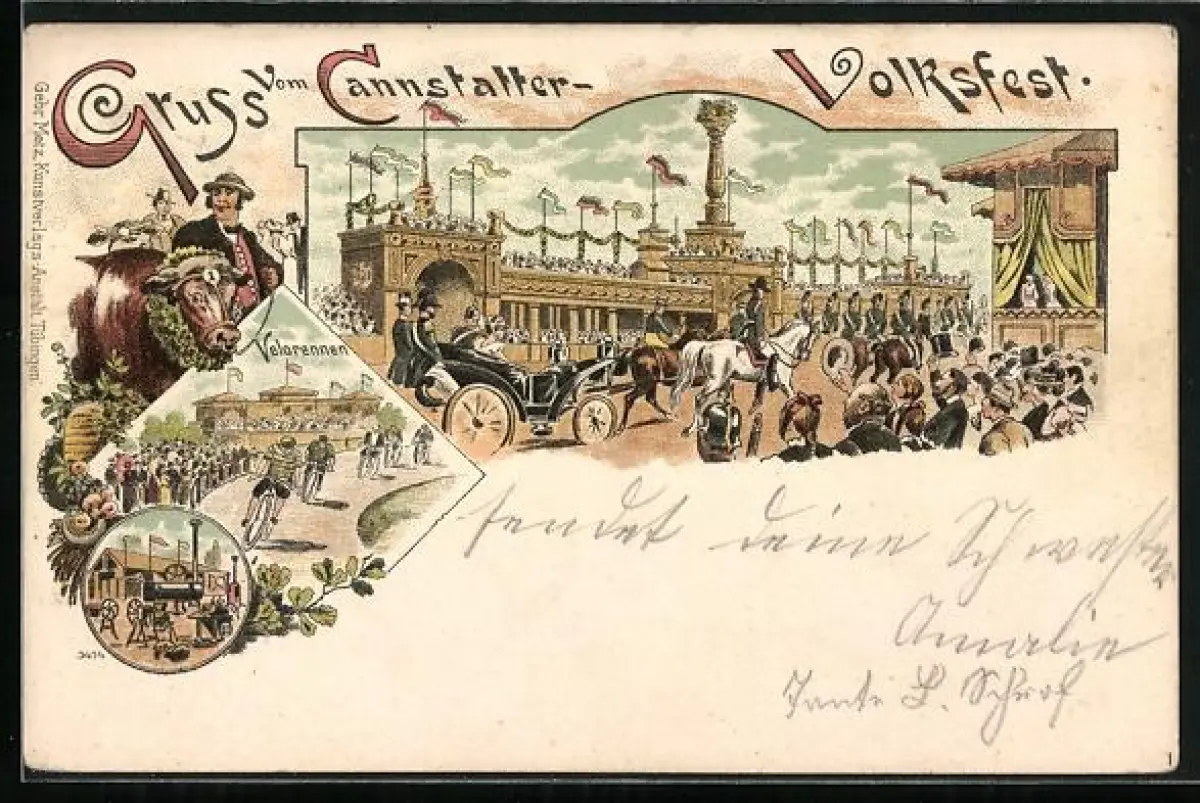 Gruss vom Cannstatter- Volksfest.
Gebr. Metz, Kunstverlags-Anstalt, Tübingen.
Velorennen
sendet deine Schwester
Amalie
Tante L.
3474
1